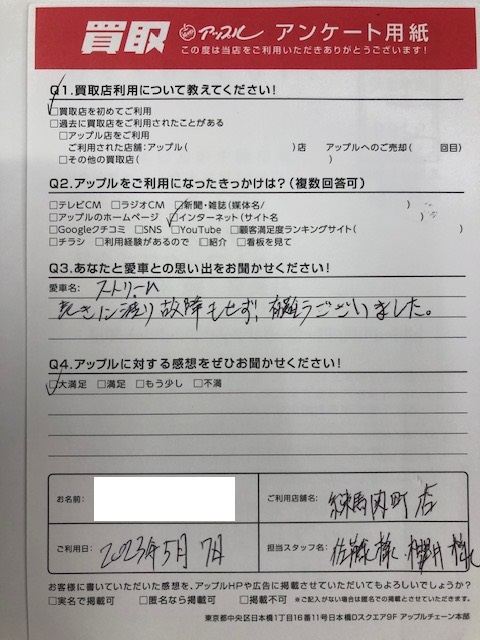 買取 アップル アンケート用紙
この度は当店をご利用いただきありがとうございます!
Q1.買取店利用について教えてください!
□買取店を初めてご利用
□過去に買取店をご利用されたことがある
□アップル店をご利用
ご利用された店舗:アップル( )店 アップルへのご売却( 回目)
□その他の買取店( )
Q2.アップルをご利用になったきっかけは?(複数回答可)
□テレビCM □ラジオCM □新聞・雑誌(媒体名/ )
□アップルのホームページ □インターネット(サイト名 )
□Googleクチコミ □SNS □YouTube □顧客満足度ランキングサイト( )
□チラシ □利用経験があるので □紹介 □看板を見て
Q3.あなたと愛車との思い出をお聞かせください!
愛車名: ストリーム
長きに渡り故障もせず、有難うございました。
Q4.アップルに対する感想をぜひお聞かせください!
□大満足 □満足 □もう少し □不満
お名前: ご利用店舗名: 練馬関町店
ご利用日: 2023年5月7日 担当スタッフ名: 佐藤様
お客様に書いていただいた感想を、アップルHPや広告に掲載させていただいてもよろしいでしょうか?
□実名で掲載可 □匿名なら掲載可 □掲載不可 ※ご記入がない場合は匿名での掲載とさせていただきます。
東京都中央区日本橋1丁目16番11号日本橋Dスクエア9F アップルチェーン本部